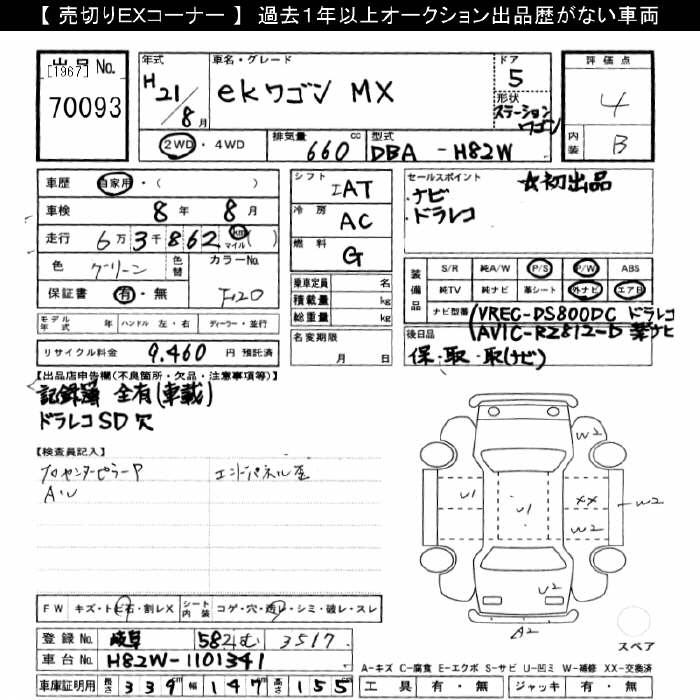 【 売切りEXコーナー 】 過去１年以上オークション出品歴がない車両
出品No.
[1967]
70093
年式
H21/8月
車名・グレード
ekワゴン MX
ドア
5
形状
ステーションワゴン
評価点
4
内装
B
2WD ・ 4WD
排気量
660 cc
型式
DBA - H82W
車歴 自家用・( )
車検 8年 8月
走行 6万3千862 km マイル ( )
色 グリーン 色替 カラーNo.
保証書 有・無 F20
モデル年式 年 ハンドル 左・右 ディーラー・並行
リサイクル料金 9,460 円 預託済
シフト IAT
冷房 AC
燃料 G
乗車定員 名
積載量 kg
総重量 kg
名変期限
月 日
セールスポイント ☆初出品
・ナビ
・ドラレコ
装備品
S/R 純A/W P/S P/W ABS
純TV 純ナビ 革シート 外ナビ エアB
ナビ型番 (VREC-DS800DC ドラレコ
AVIC-RZ812-D 楽ナビ
後日品
保・取・取(ナビ)
【出品店申告欄(不良箇所・欠品・注意事項等)】
記録簿 全有(車載)
ドラレコSD欠
【検査員記入】
エンドパネル歪
A・U
W2
U1
U1
XX
W2
W2
U2
A2
スペア
FW キズ・トビ石・割レX シート内装 コゲ・穴・透レ・シミ・破レ・スレ
登録No. 岐阜 582 む 3517
車台No. H82W-1101341
車庫証明用 長さ 339 幅 147 高さ 155 cm
A-キズ C-腐食 E-エクボ S-サビ U-凹ミ W-補修 XX-交換済
工具 有・無 ジャッキ 有・無